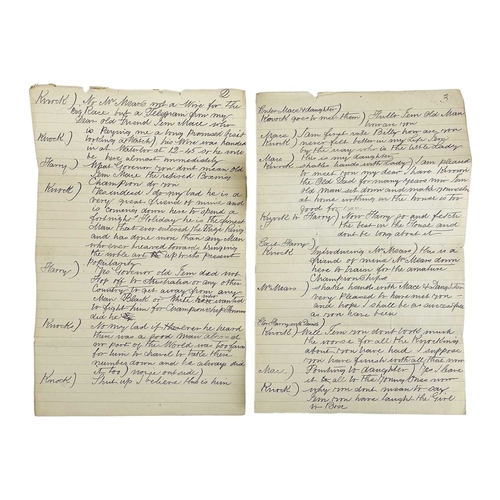 2
Knock) No Mr Mears not a Wire for the
Big Race but a Telegram from my
Dear old Friend Jem Mace who
is Paying me a long Promised Visit
looking at Watch) his Wire was handed
Knock) in at Waterloo at 12-45 so he
be here almost immediately
Harry) What Govenor you dont mean old
Jem Mace the retired Boxing
Champion do you
Knock) Yes indeed I do my lad he is a
very great friend of mine and
is coming down here to spend a
fortnights Holiday he is the finest
Man that ever entered the Prize Ring
and has done more than any Man
who ever towards bringing
the noble art up to the present
Popularity
Harry) Govenor old Jem did not
Hop off to Australia or any other
Country to get away from any
Man Black or White who wanted
to fight him for Championship Honours
did he
Knock) No my lad if he heard
there was a good man
any part of the World was too far
for him to travel to take their
number down and he always did
it too
Knock) Shut up I believe this is him
3.
Enter Mace & daughter)
Knock goes to meet them) Hullo Jem old Man
how are you
Mace) I am first rate Billy how are you
Knock) never felt better in my life Jem
by the way who is the little lady
Mace) this is my daughter
Knock) shakes hands with lady) I am pleased
to meet you my dear I have known
the Old Lad for many years now Jem
old man set down and make yourselves
at home nothing in the house is too
good for
Knock to Harry) Now Harry go and fetch
the best in the House and
dont be long about it
Exit Harry)
Knock) Introducing Mr Mears) this is a
friend of mine Mr Mears down
here to train for the amateur
Championships
Mr Mears) shakes hands with Mace & daughter
very Pleased to have met you
and hope I shall be as successful
as you have been
Knock) Well Jem you dont look much
the worse for all the Knockings
about you have had I suppose
you have finished with all that now
Mace) Pointing to daughter) Yes I leave
it all to the Young Ones now
Knock) why you dont mean to say
Jem you have taught the Girl
to Box